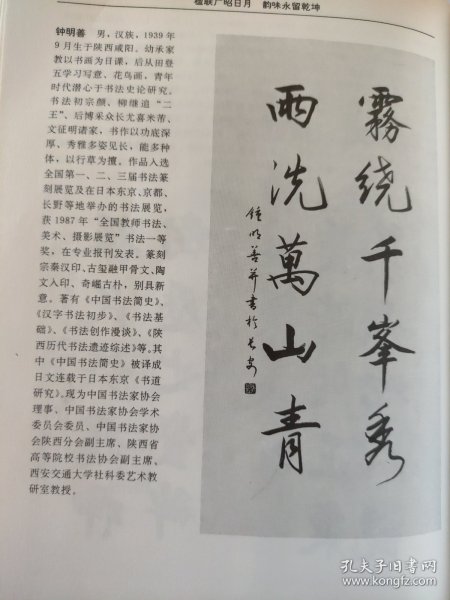 楹联广昭日月 韵味永留乾坤
钟明善 男，汉族，1939年
9月生于陕西咸阳。幼承家
教以书画为日课，后从田登
五学习写意、花鸟画，青年
时代潜心于书法史论研究。
书法初宗颜、柳继追“二
王”、后博采众长尤喜米芾、
文征明诸家，书作以功底深
厚、秀雅多姿见长，能多种
体，以行草为擅。作品入选
全国第一、二、三届书法篆
刻展览及在日本东京、京都、
长野等地举办的书法展览，
获1987年“全国教师书法、
美术、摄影展览”书法一等
奖，在专业报刊发表。篆刻
宗秦汉印、古玺融甲骨文、陶
文入印、奇崛古朴，别具新
意。著有《中国书法简史》、
《汉字书法初步》、《书法基
础》、《书法创作漫谈》、《陕
西历代书法遗迹综述》等。其
中《中国书法简史》被译成
日文连载于日本东京《书道
研究》。现为中国书法家协会
理事、中国书法家协会学术
委员会委员、中国书法家协
会陕西分会副主席、陕西省
高等院校书法协会副主席、
西安交通大学社科委艺术教
研室教授。
霧绕千峯秀
雨洗萬山青
鍾明善并書於长安
孔夫子旧书网
www.kongfz.com